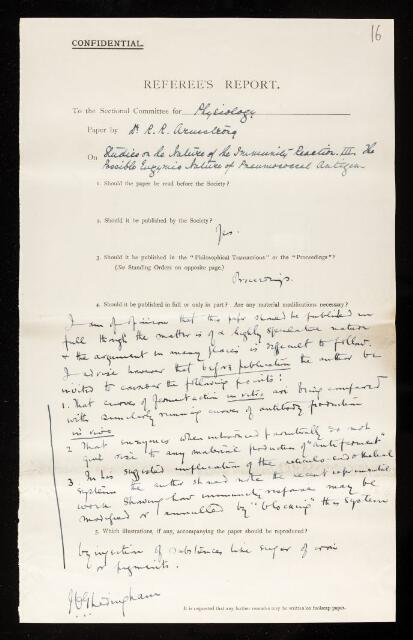 16
CONFIDENTIAL.
REFEREE'S REPORT.
To the Sectional Committee for Physiology
Paper by Dr R. R. Armstrong
On Studies on the Nature of the Immunity Reaction. III. The
Possible Enzymic Nature of Pneumococcal Antigen.
1. Should the paper be read before the Society?
2. Should it be published by the Society?
Yes.
3. Should it be published in the "Philosophical Transactions" or the "Proceedings"?
(See Standing Orders on opposite page.)
Proceedings.
4. Should it be published in full or only in part? Are any material modifications necessary?
I am of opinion that this paper should be published in
full though the matter is of a highly speculative nature
& the argument in many places is difficult to follow.
I advise however that before publication the author be
invited to consider the following points:
1. That curves of ferment action in vitro are being compared
with similarly running curves of antibody production
in vivo.
2 That enzymes when introduced parenterally do not
give rise to any material production of "antiferment"
3. In his suggested implication of the reticulo-endothelial
system the author should note the recent experimental
work showing how immunity response may be
modified or annulled by "blocking" this system
5. Which illustrations, if any, accompanying the paper should be reproduced?
by injection of substances like sugar of iron
or pigments.
J C G Ledingham
It is requested that any further remarks may be written on foolscap paper.